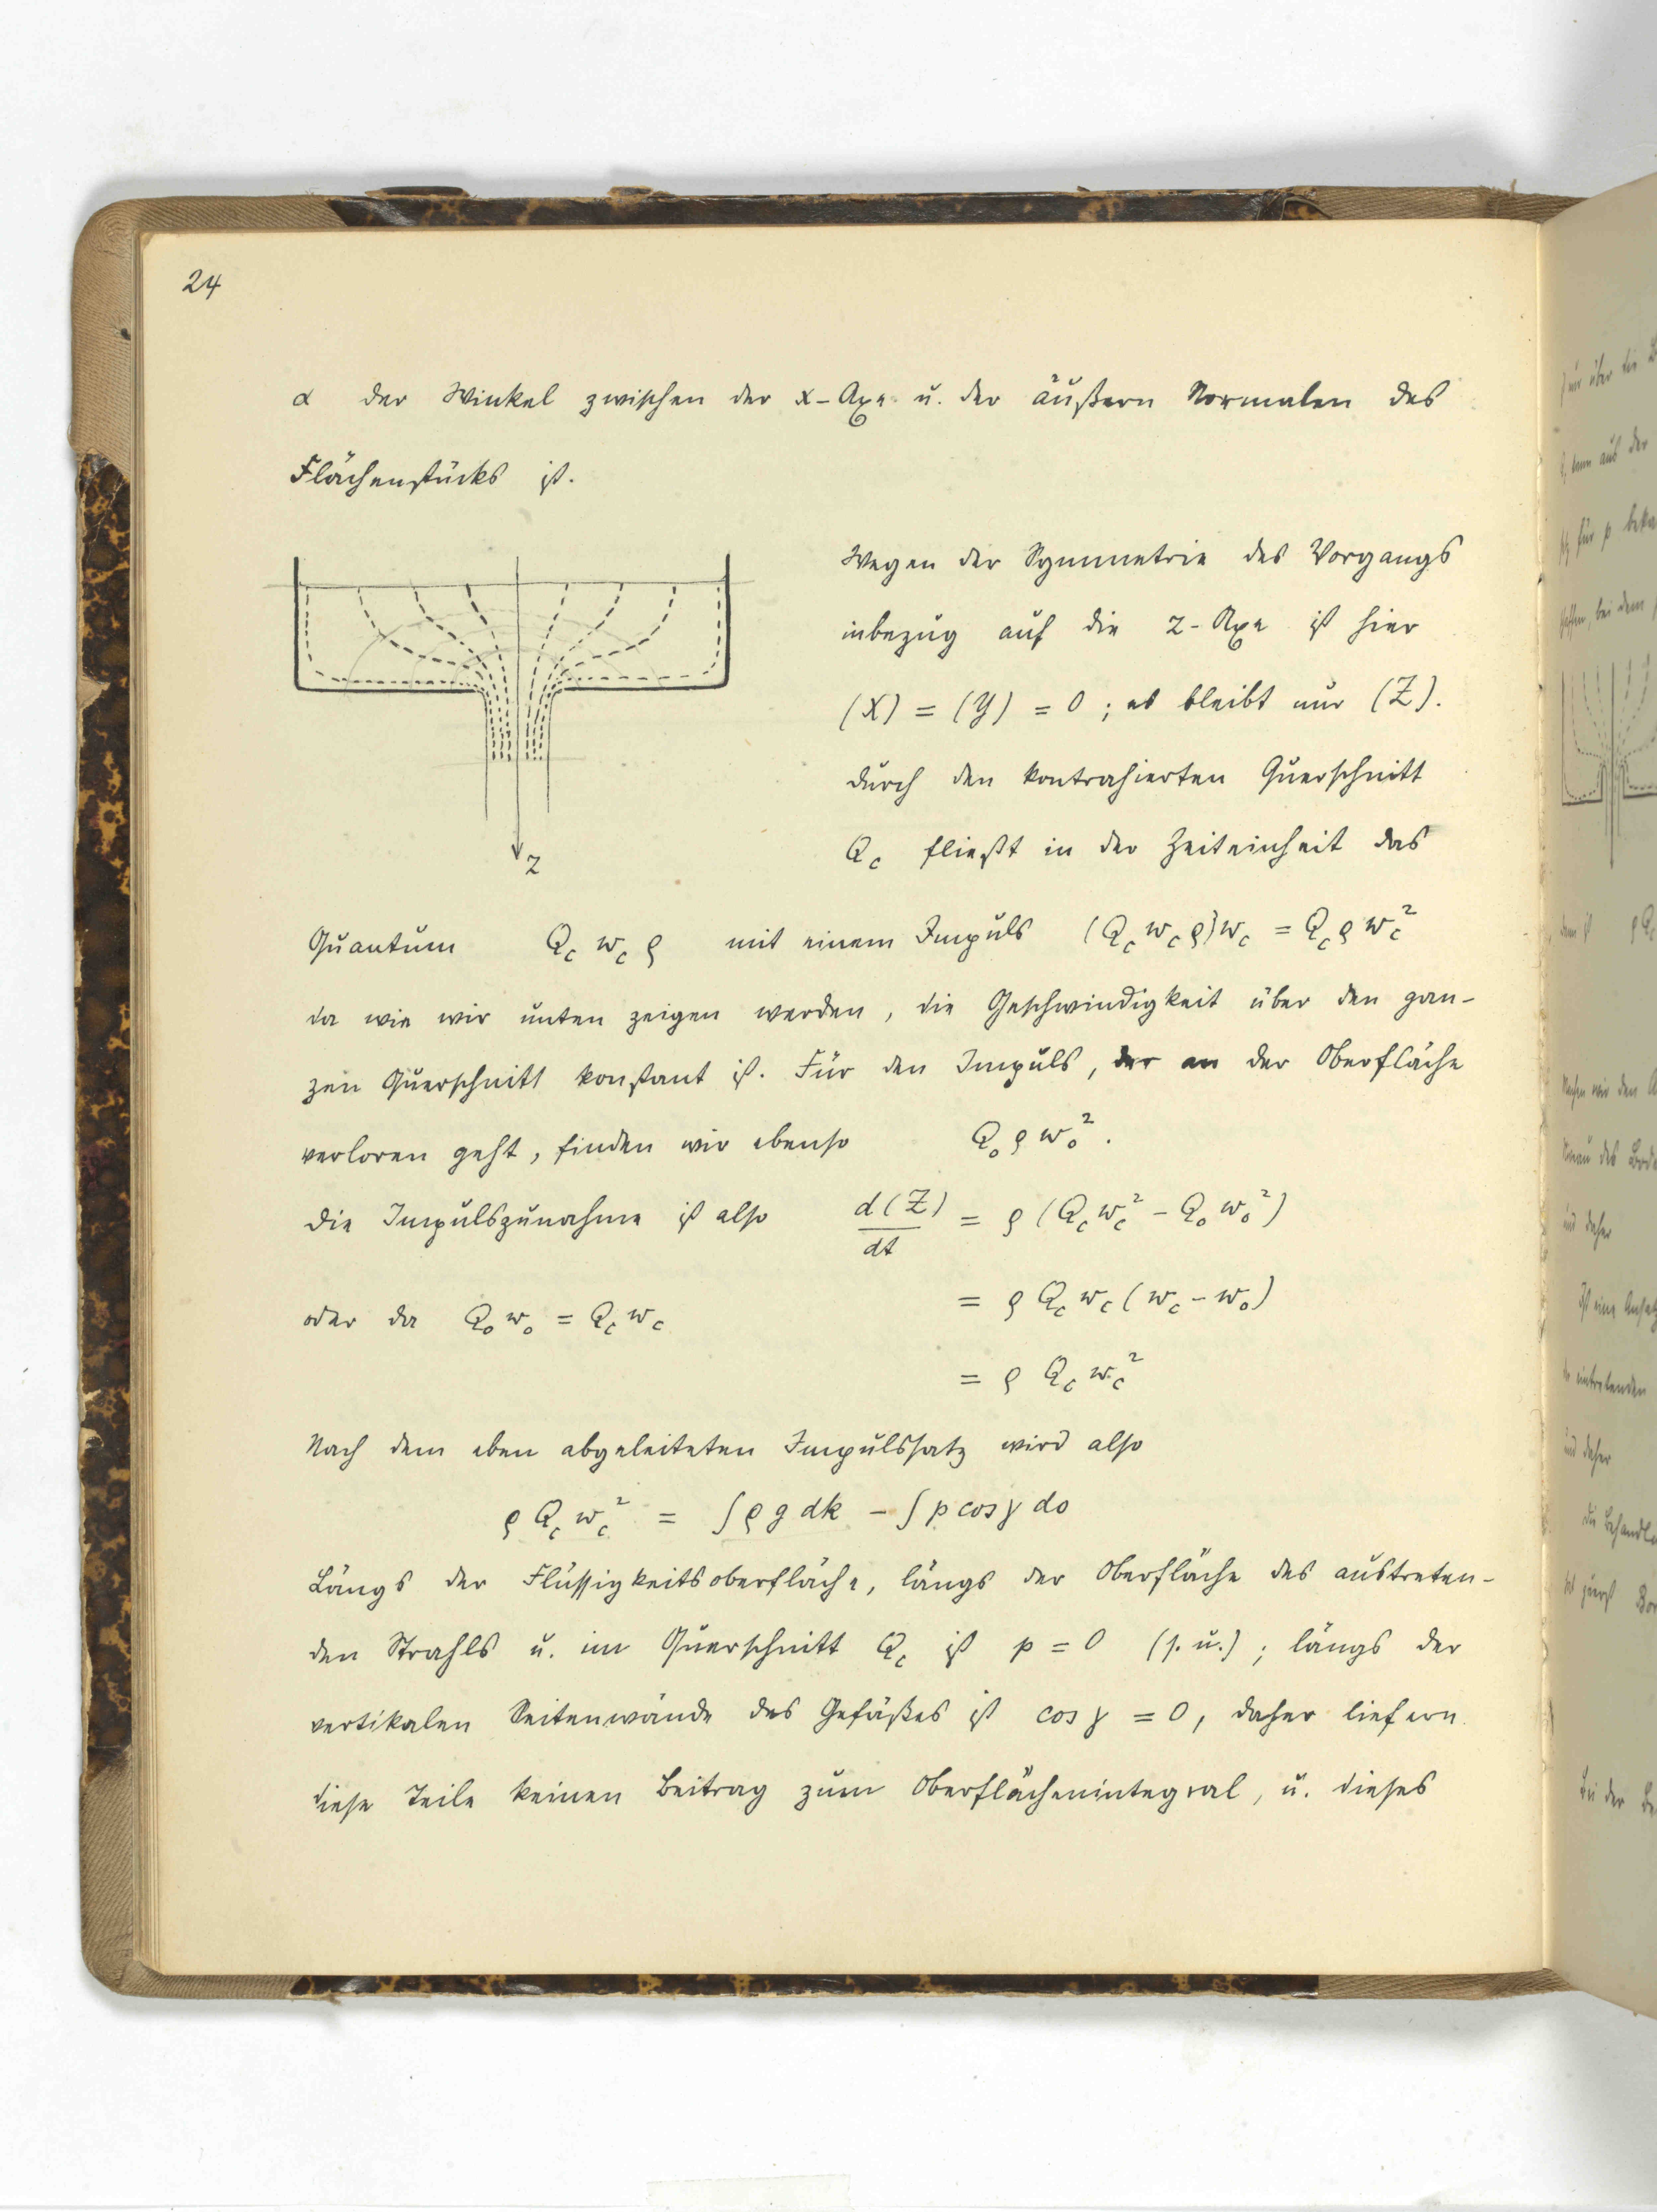 24
α der Winkel zwischen der x-Axe u. der äußern Normalen des
Flächenstücks ist.
Wegen der Symmetrie des Vorgangs
inbezug auf die z-Axe ist hier
(X) = (Y) = 0 ; es bleibt nur (Z).
durch den kontrahierten Querschnitt
Q_c fließt in der Zeiteinheit das
z
Quantum Q_c w_c ρ mit einem Impuls (Q_c w_c ρ) w_c = Q_c ρ w_c²
da wie wir unten zeigen werden, die Geschwindigkeit über den gan-
zen Querschnitt konstant ist. Für den Impuls, der an der Oberfläche
verloren geht, finden wir ebenso Q_o ρ w_o².
die Impulszunahme ist also d(Z)/dt = ρ (Q_c w_c² - Q_o w_o²)
oder da Q_o w_o = Q_c w_c = ρ Q_c w_c (w_c - w_o)
= ρ Q_c w_c²
Nach dem eben abgeleiteten Impulssatz wird also
ρ Q_c w_c² = ∫ρ g dk - ∫p cos γ do
Längs der Flüssigkeitsoberfläche, längs der Oberfläche des austreten-
den Strahls u. im Querschnitt Q_c ist p = 0 (s. u.) ; längs der
vertikalen Seitenwände des Gefäßes ist cos γ = 0, daher liefern
diese Teile keinen Beitrag zum Oberflächenintegral, u. dieses